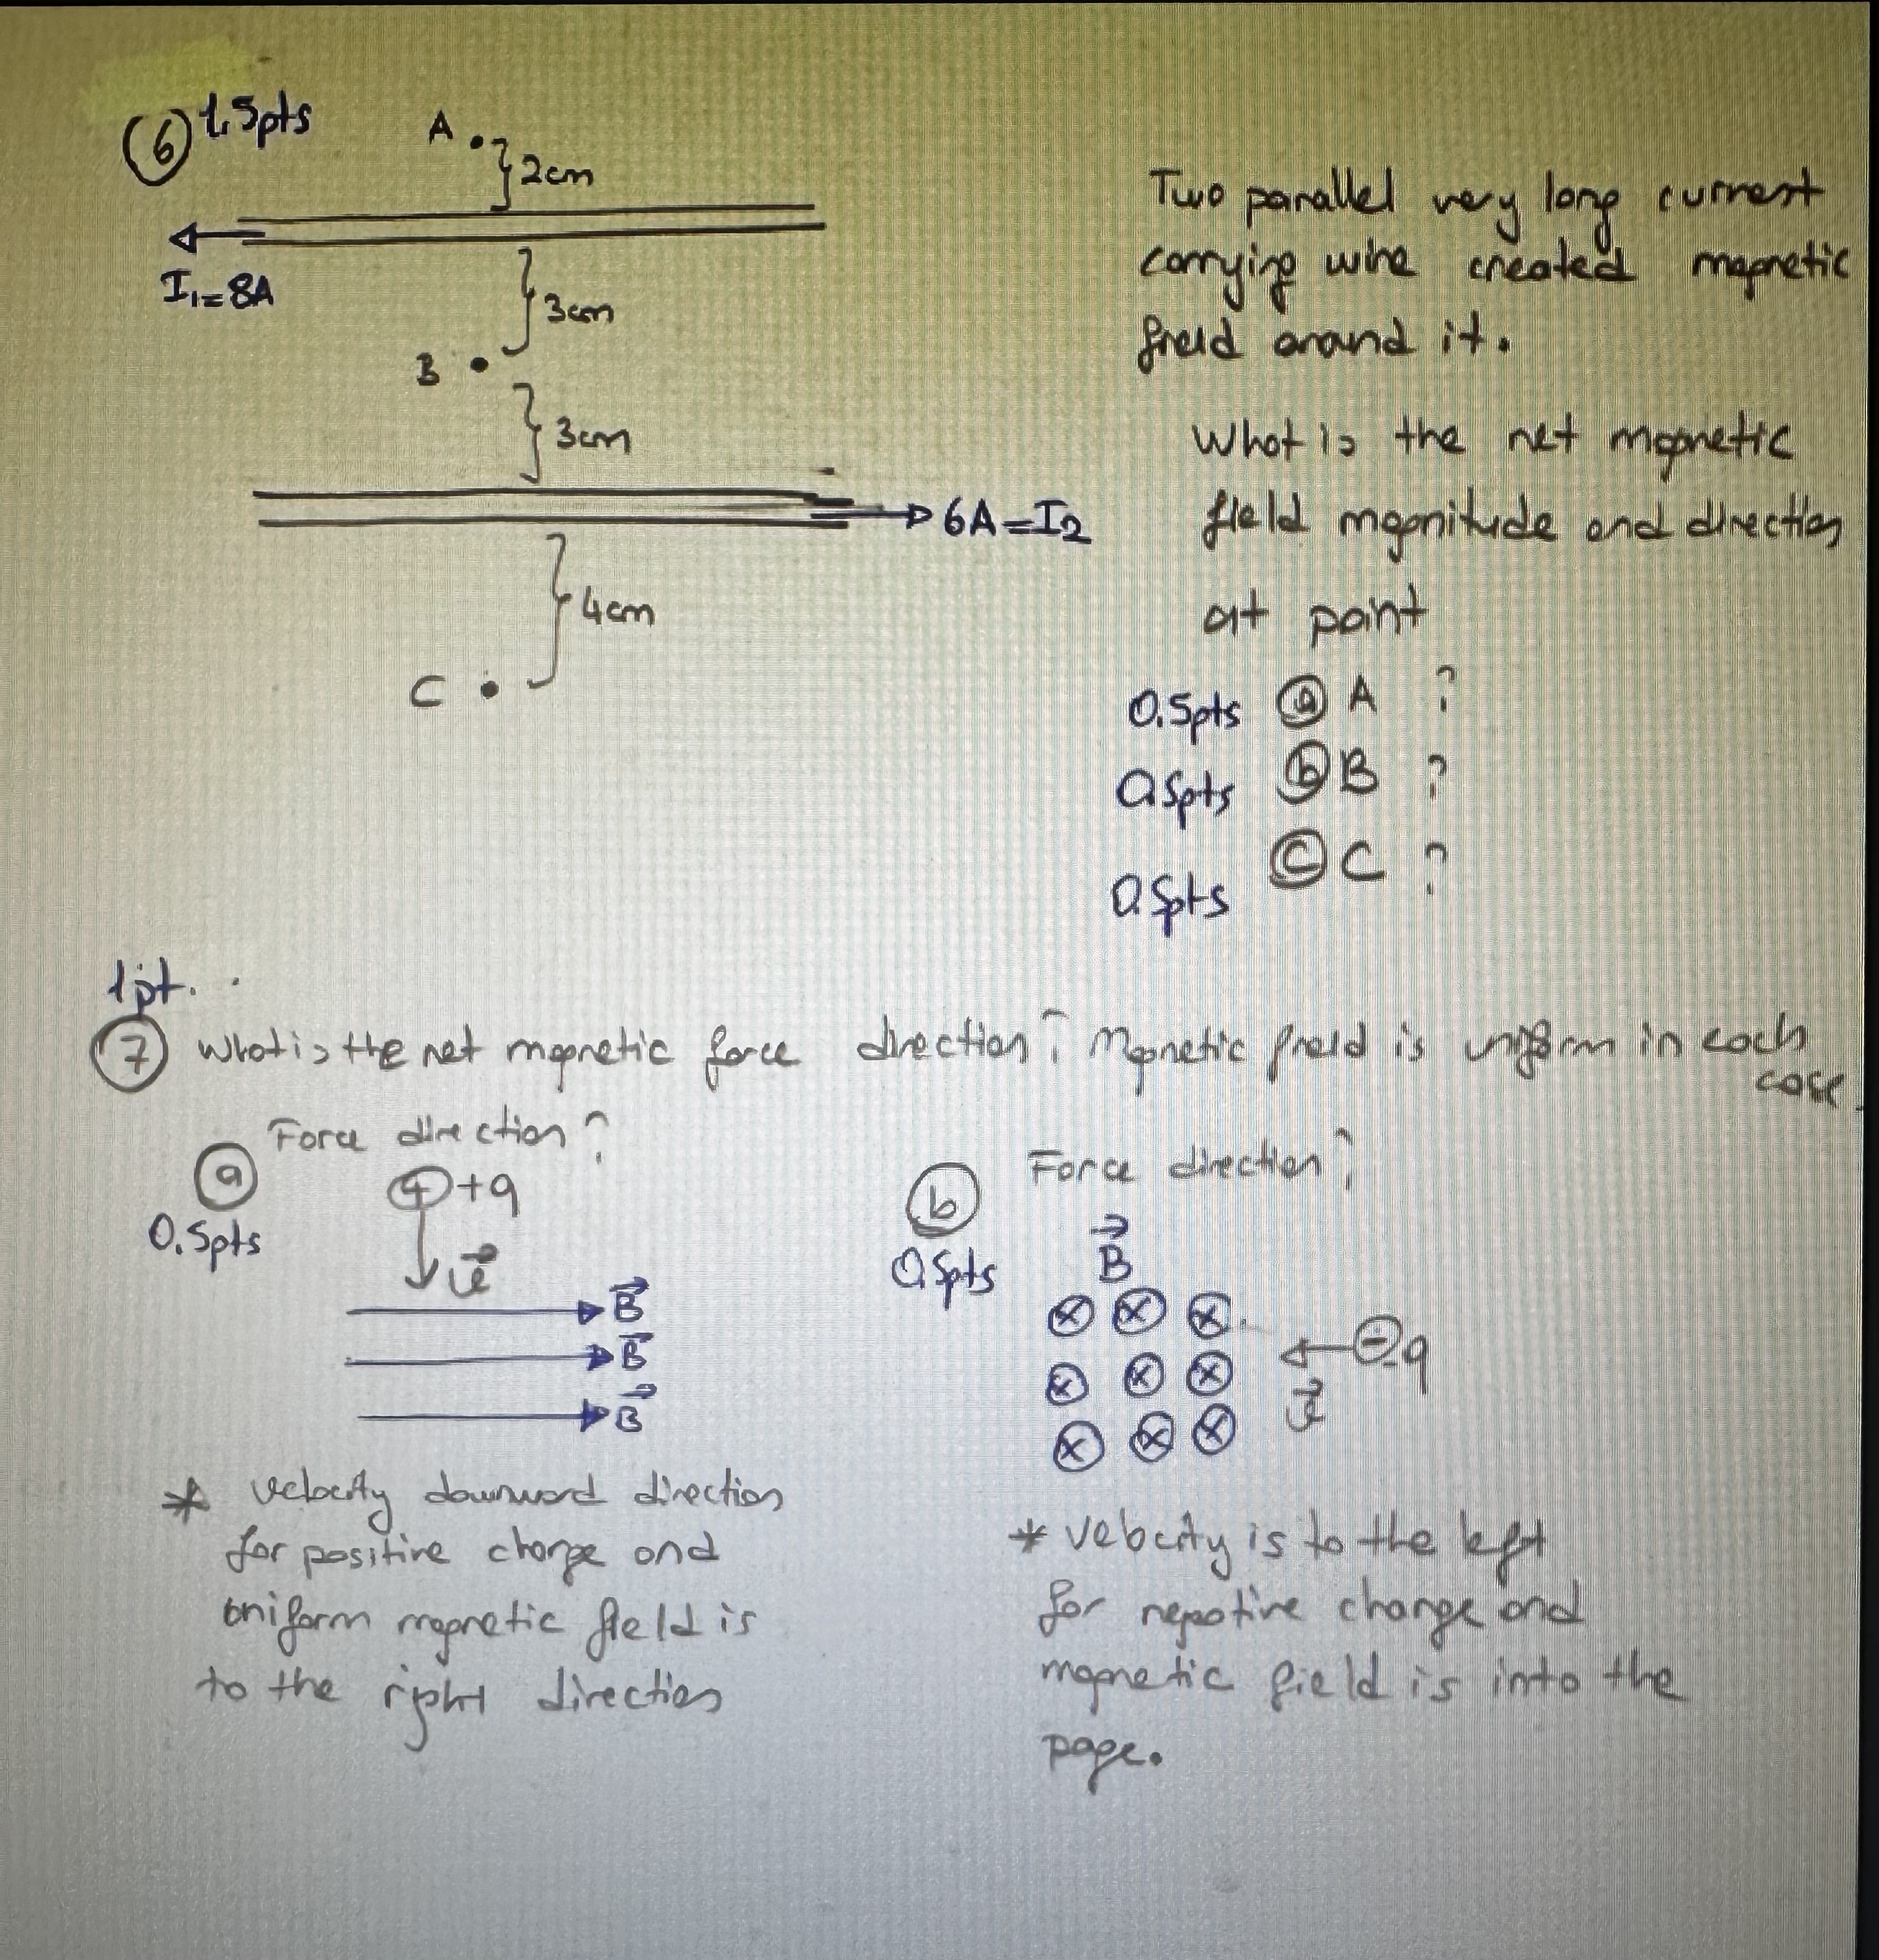 ⑥ 1.5pts
A
2cm
I₁=8A
3cm
B
3cm
6A=I2
4cm
C
Two parallel very long current
carrying wire created magnetic
field around it.
What is the net magnetic
field magnitude and direction
at point
0.5pts ⓐ A ?
0.5pts ⓑ B ?
0.5pts ⓒ C ?
1pt.
⑦ What is the net magnetic force direction? Magnetic field is uniform in each
case.
Force direction?
ⓐ
0.5pts
+ +q
B
B
B
* velocity downward direction
for positive charge and
uniform magnetic field is
to the right direction
Force direction?
ⓑ
0.5pts
B
x x x
x x x
x x x
- -q
* velocity is to the left
for negative charge and
magnetic field is into the
page.